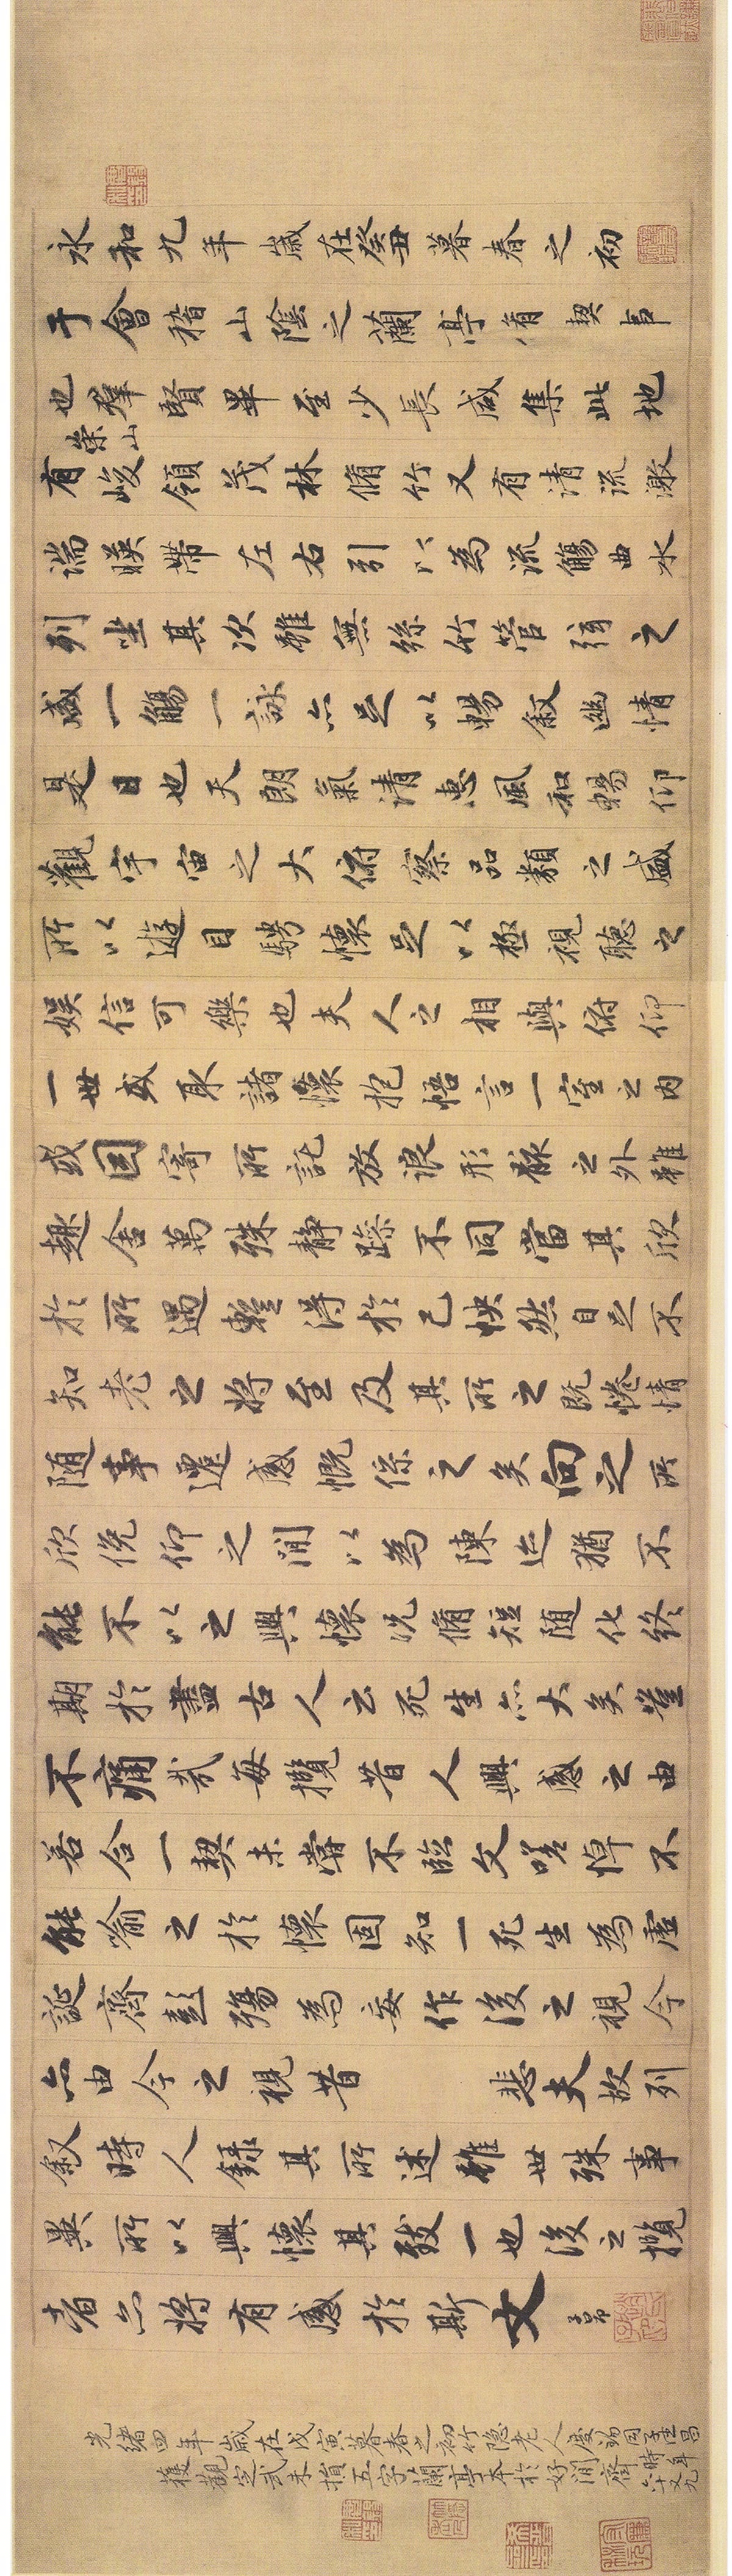 永和九年歲在癸丑暮春之初
于會稽山陰之蘭亭脩禊事
也羣賢畢至少長咸集此地
崇山
有峻領茂林脩竹又有清流激
湍暎帶左右引以為流觴曲水
列坐其次雖無絲竹管弦之
盛一觴一詠亦足以暢敘幽情
是日也天朗氣清惠風和暢仰
觀宇宙之大俯察品類之盛
所以遊目騁懷足以極視聽之
娛信可樂也夫人之相與俯仰
一世或取諸懷抱悟言一室之內
或因寄所託放浪形骸之外雖
趣舍萬殊靜躁不同當其欣
於所遇蹔得於己怏然自足不
知老之將至及其所之既惓情
隨事遷感慨係之矣向之所
欣俛仰之閒以為陳迹猶不
能不以之興懷況脩短隨化終
期於盡古人云死生亦大矣豈
不痛哉每攬昔人興感之由
若合一契未嘗不臨文嗟悼不
能喻之於懷固知一死生為虛
誕齊彭殤為妄作後之視今
亦由今之視昔 悲夫故列
敘時人錄其所述雖世殊事
異所以興懷其致一也後之攬
者亦將有感於斯文 子昂
光緒四年歲在戊寅暮春之初竹隱老人慶錫同
獲觀定武未損五字蘭亭本於好閒齋時年六十又九